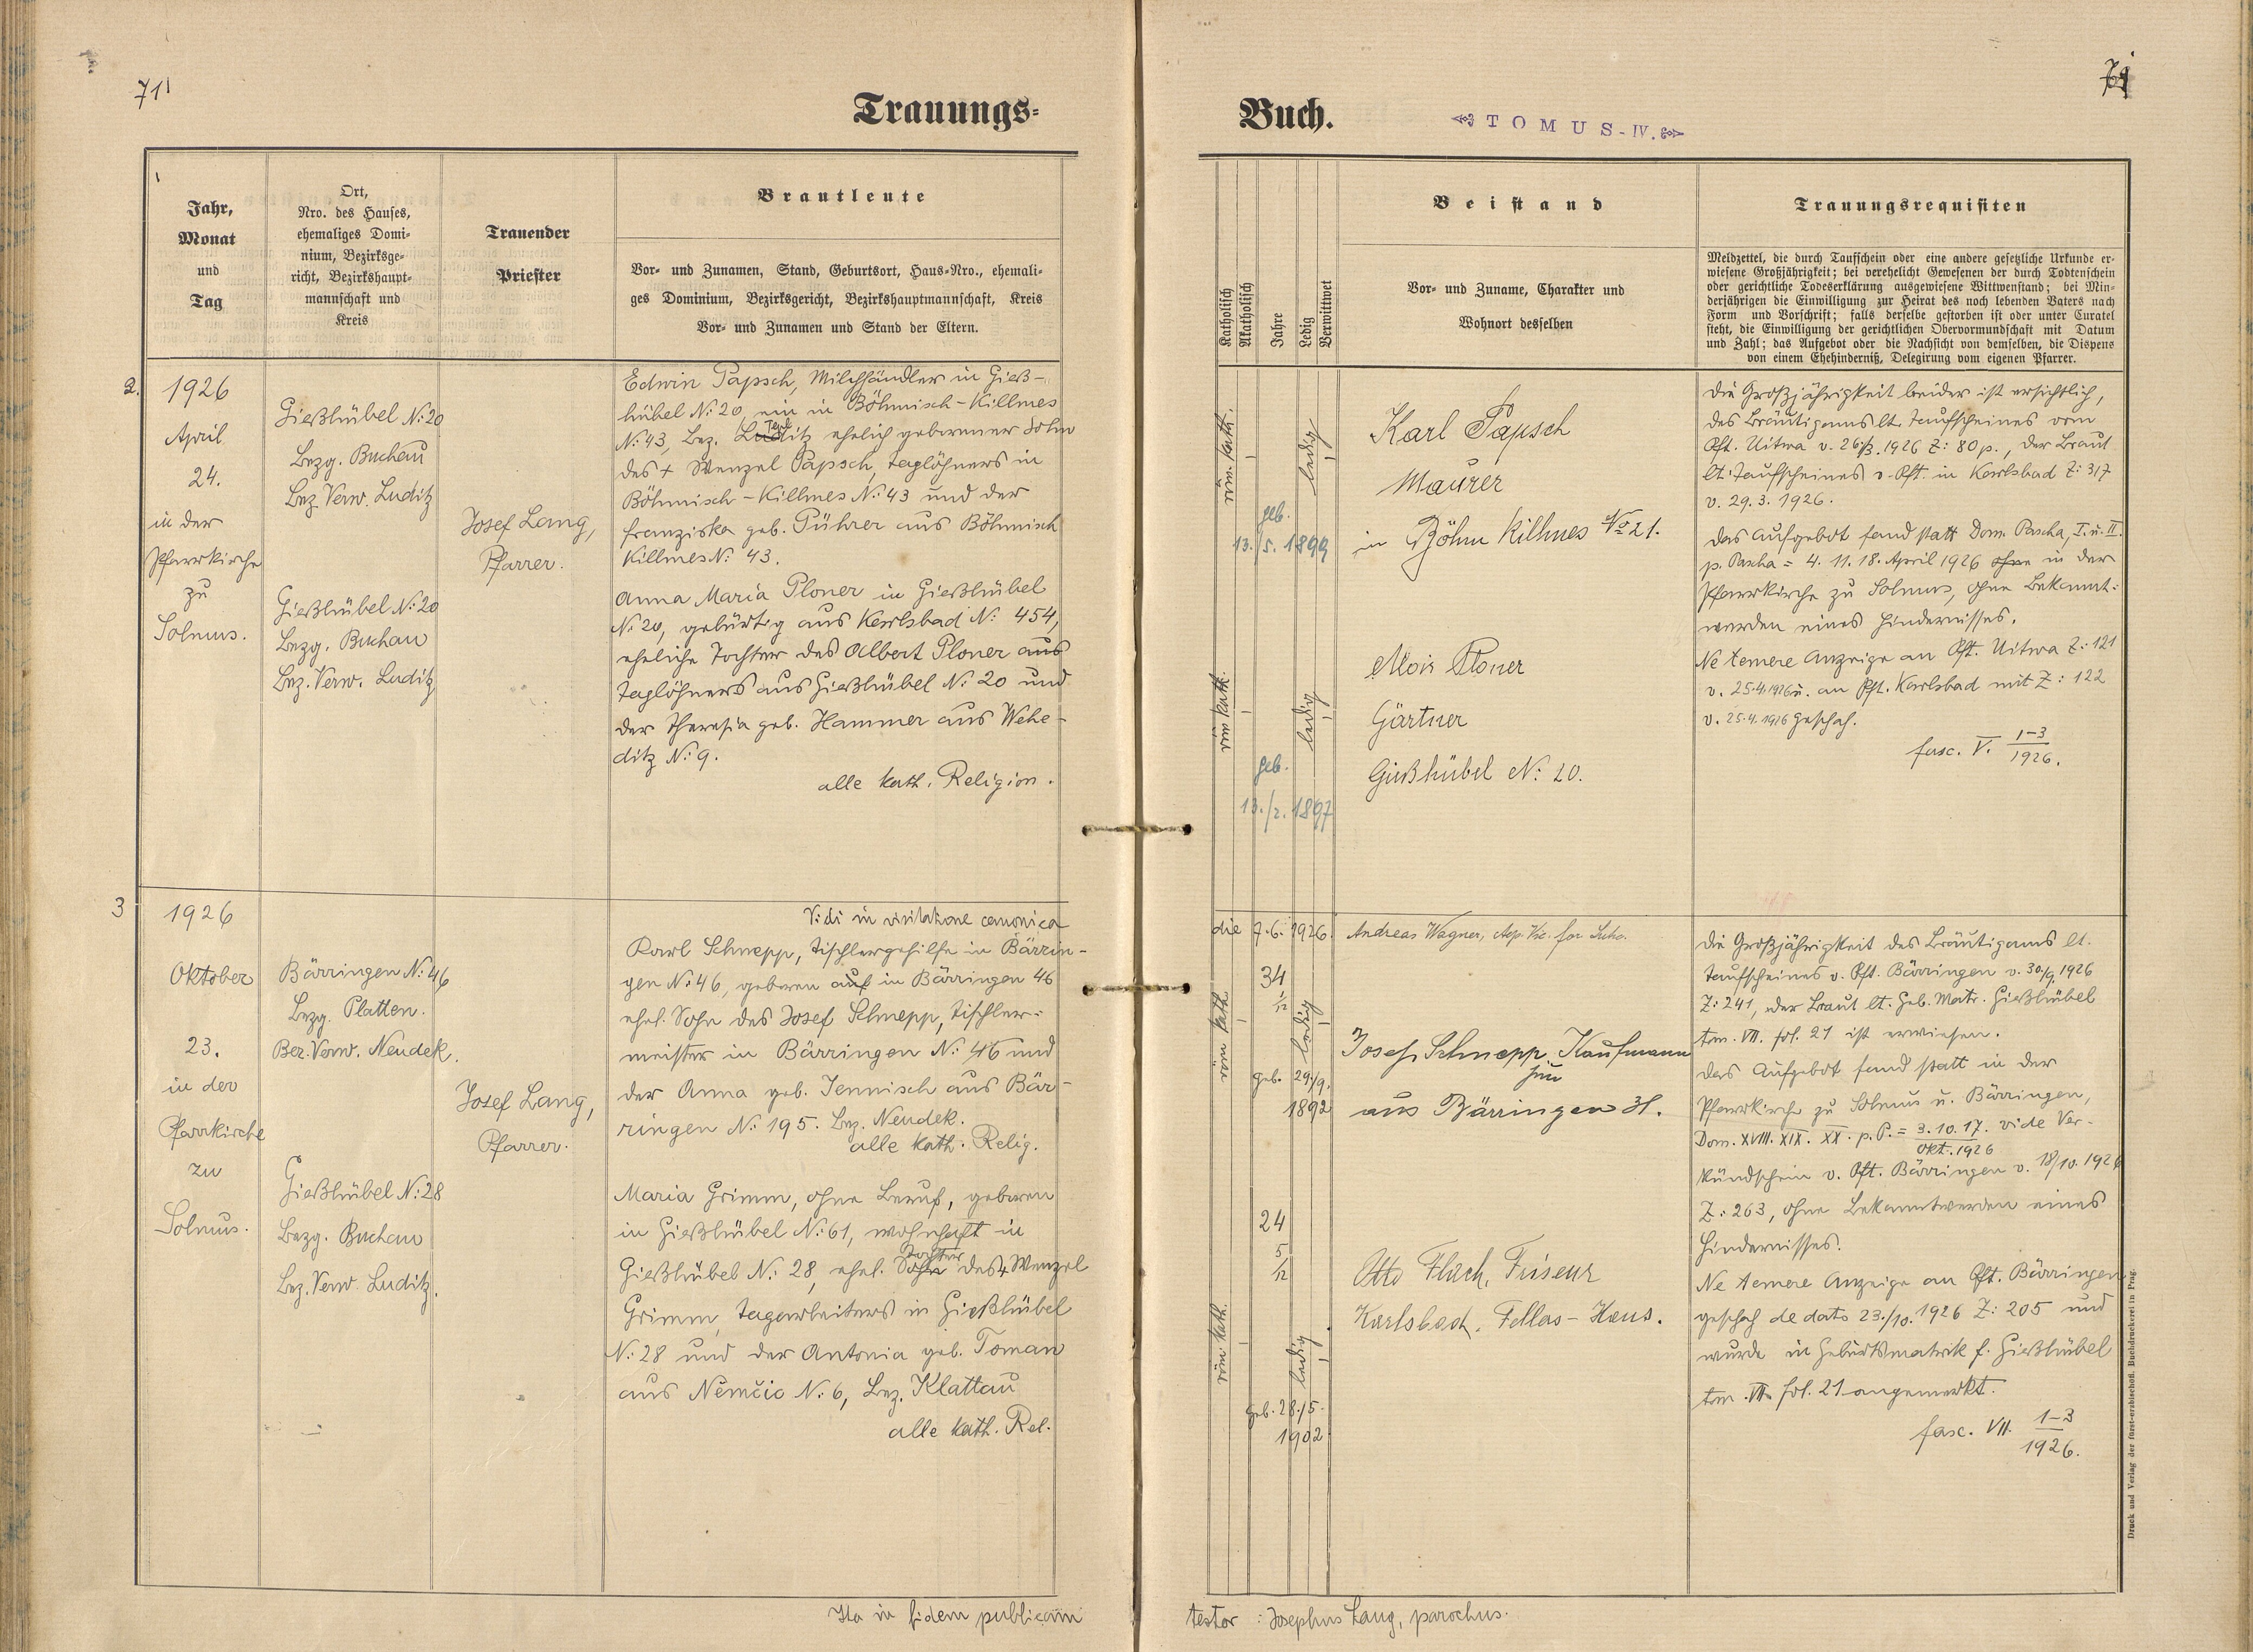 71
Trauungs=
Jahr,
Monat
und
Tag
Ort,
Nro. des Hauses,
ehemaliges Domi=
nium, Bezirksge=
richt, Bezirkshaupt=
mannschaft und
Kreis
Trauender
Priester
Brautleute
Vor- und Zunamen, Stand, Geburtsort, Haus=Nro., ehemali=
ges Dominium, Bezirksgericht, Bezirkshauptmannschaft, Kreis
Vor- und Zunamen und Stand der Eltern.
2.
1926
April
24.
in der
Pfarrkirche
zu
Solmus.
Gießhübel N: 20
Bezg. Buchau
Bez. Verw. Luditz
Gießhübel N: 20
Bezg. Buchau
Bez. Verw. Luditz
Josef Lang,
Pfarrer.
Edwin Papsch, Milchhändler in Gieß-
hübel N: 20, ein in Böhmisch-Killmes
N: 43, Bez. Luditz ehelich geborener Sohn
des + Wenzel Papsch, Taglöhners in
Böhmisch-Killmes N: 43 und der
Franziska geb. Pührer aus Böhmisch
Killmes N: 43.
Anna Maria Ploner in Gießhübel
N: 20, gebürtig aus Karlsbad N: 454,
eheliche Tochter des Albert Ploner aus
Taglöhners aus Gießhübel N: 20 und
der Theresia geb. Hammer aus Wehe-
ditz N: 9.
alle kath. Religion.
3
1926
Oktober
23.
in der
Pfarrkirche
zu
Solmus.
Bärringen N: 46
Bezg. Platten.
Bez. Verw. Neudek.
Gießhübel N: 28
Bezg. Buchau
Bez. Verw. Luditz.
Josef Lang,
Pfarrer.
Vidi in visitatione canonica
Karl Schnepp, Tischlergehilfe in Bärrin-
gen N: 46, geboren auf in Bärringen 46
ehel. Sohn des Josef Schnepp, Tischler-
meister in Bärringen N: 46 und
der Anna geb. Jennisch aus Bär-
ringen N: 195. Bez. Neudek.
alle kath. Relig.
Maria Grimm, ohne Beruf, geboren
in Gießhübel N: 61, wohnhaft in
Tochter
Gießhübel N: 28, ehel. Sohn des + Wenzel
Grimm, Tagarbeiters in Gießhübel
N: 28 und der Antonia geb. Toman
aus Němčic N: 6, Bez. Klattau
alle kath. Rel.
Ita in fidem publicam
Buch.
TOMUS-IV.
71
Katholisch
Akatholisch
Jahre
Ledig
Verwittwet
Beistand
Vor- und Zuname, Charakter und
Wohnort desselben
Trauungsrequisiten
Meldzettel, die durch Taufschein oder eine andere gesetzliche Urkunde er=
wiesene Großjährigkeit; bei verehelicht Gewesenen der durch Todtenschein
oder gerichtliche Todeserklärung ausgewiesene Wittwenstand; bei Min=
derjährigen die Einwilligung zur Heirat des noch lebenden Vaters nach
Form und Vorschrift; falls derselbe gestorben ist oder unter Curatel
steht, die Einwilligung der gerichtlichen Obervormundschaft mit Datum
und Zahl; das Aufgebot oder die Nachsicht von demselben, die Dispens
von einem Ehehinderniß, Delegirung vom eigenen Pfarrer.
röm. kath.
ledig
geb.
13./5. 1899
Karl Papsch
Maurer
in Böhm Killmes No 21.
röm kath.
ledig
geb.
13./2. 1897
Alois Ploner
Gärtner
Gießhübel N: 20.
Die Großjährigkeit beider ist ersichtlich,
des Bräutigams lt. Taufscheines vom
Pft. Uitwa v. 26/3. 1926 Z: 80 p., der Braut
lt. Taufscheines v. Pft. in Karlsbad Z: 317
v. 29. 3. 1926.
Das Aufgebot fand statt Dom. Pascha, I. u. II.
p. Pascha = 4. 11. 18. April 1926 ohne in der
Pfarrkirche zu Solmus, ohne Bekannt-
werden eines Hindernisses.
Ne temere Anzeige an Pft. Uitwa Z: 121
v. 25.4.1926 u. an Pft. Karlsbad mit Z: 122
v. 25.4.1926 geschah.
fasc. V. 1-3
1926.
die 7. 6. 1926. Andreas Wagner,
34
1/12
röm kath
ledig
geb. 29./9.
1892
Josef Schnepp, Kaufmann
jun
aus Bärringen 31.
24
5/12
röm kath.
ledig
geb. 28./5.
1902
Otto Flach, Friseur
Karlsbad, Fellas-Haus.
Die Großjährigkeit des Bräutigams lt.
Taufscheines v. Pft. Bärringen v. 30./9. 1926
Z: 241, der Braut lt. Geb. Matr. Gießhübel
tom. VII. fol. 21 ist erwiesen.
Das Aufgebot fand statt in der
Pfarrkirche zu Solmus u. Bärringen,
Dom. XVIII. XIX. XX. p. P. = 3. 10. 17. vide Ver-
Okt. 1926
kündschein v. Pft. Bärringen v. 18/10. 1926
Z: 263, ohne Bekanntwerden eines
Hindernisses.
Ne temere Anzeige an Pft. Bärringen
geschah de dato 23./10. 1926 Z: 205 und
wurde in Geburtsmatrik f. Gießhübel
tom. VII. fol. 21 angemerkt.
fasc. VII. 1-3
1926.
testor : Josephus Lang, parochus.
Druck und Verlag der fürst-erzbischöfl. Buchdruckerei in Prag.